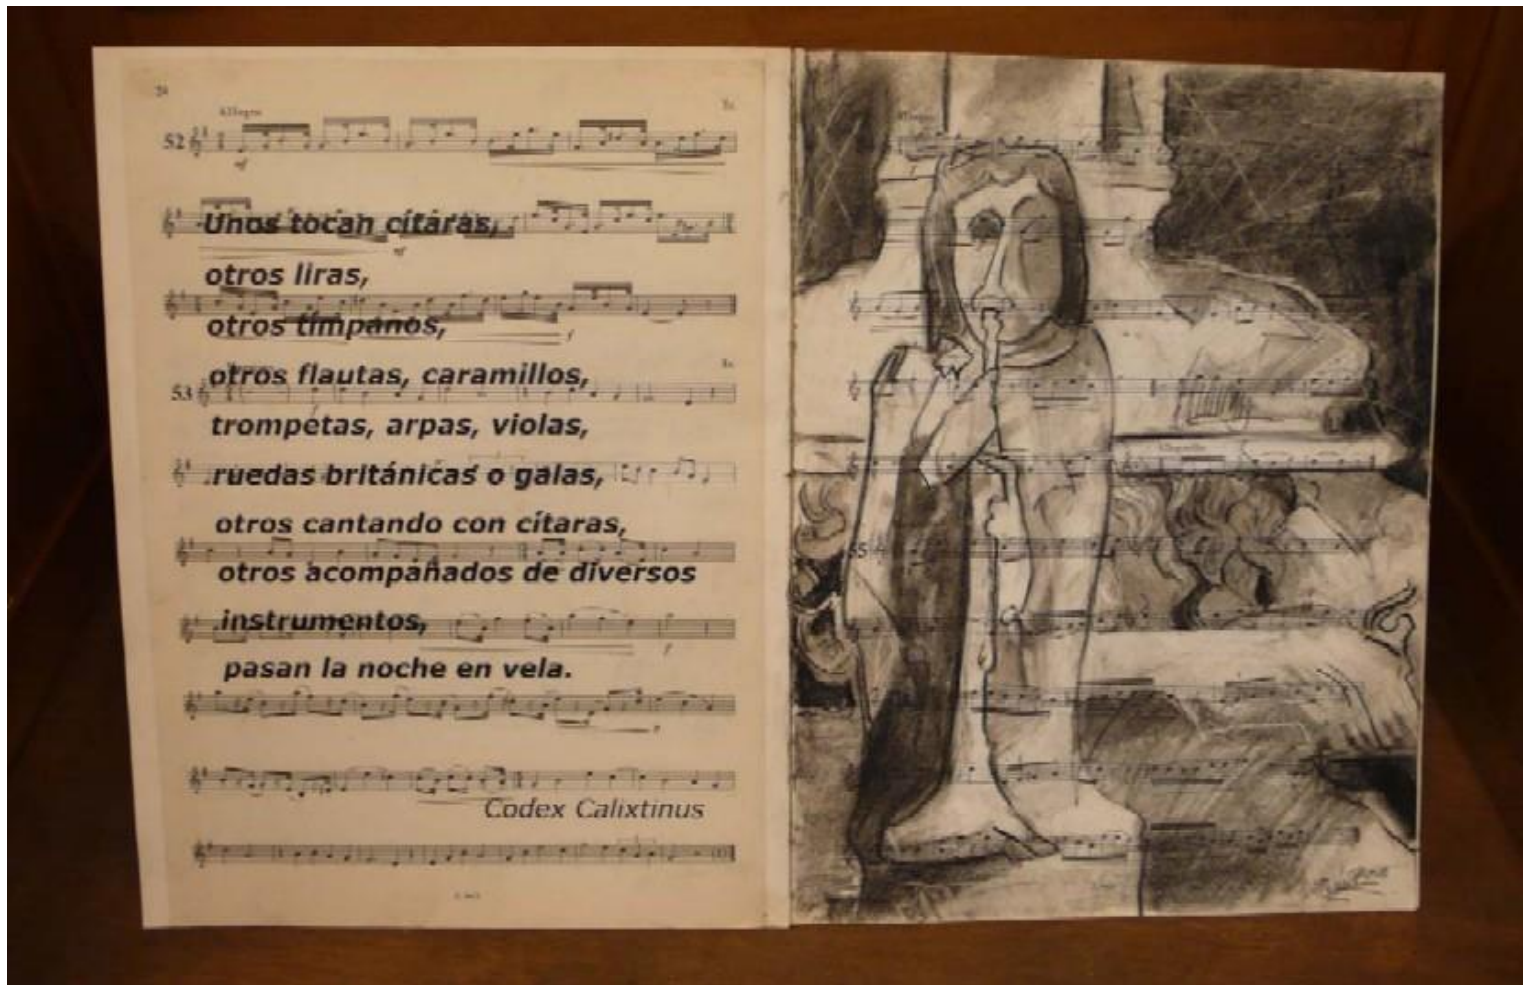 Allegro
52
mf
Unos tocan cítaras,
mf
otros liras,
otros tímpanos,
f
otros flautas, caramillos,
53
trompetas, arpas, violas,
ruedas británicas o galas,
otros cantando con cítaras,
otros acompañados de diversos
instrumentos,
f
pasan la noche en vela.
Codex Calixtinus
55